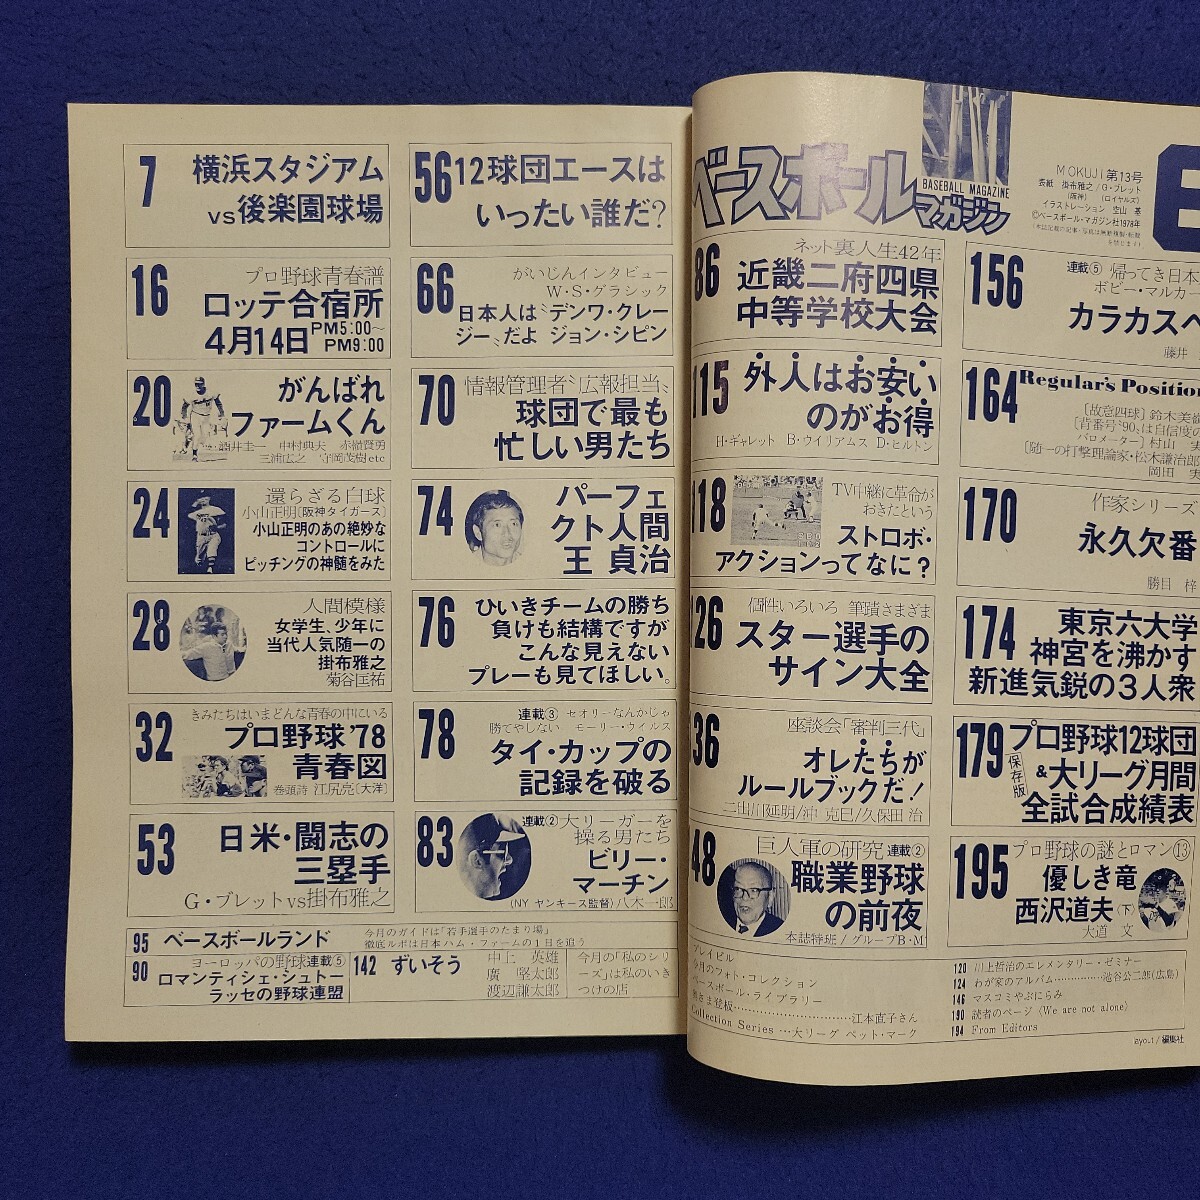 7
横浜スタジアム
vs後楽園球場
16
プロ野球青春譜
ロッテ合宿所
4月14日PM5:00〜
PM9:00
20
がんばれ
ファームくん
中村典夫
三浦広之 守岡茂樹etc
24
還らざる白球
小山正明〔阪神タイガース〕
小山正明のあの絶妙な
コントロールに
ピッチングの神髄をみた
28
人間模様
女学生、少年に
当代人気随一の
掛布雅之
菊谷匡祐
32
きみたちはいまどんな青春の中にいる
プロ野球'78
青春図
巻頭詩 江尻亮〔大洋〕
53
日米・闘志の
三塁手
G・ブレットvs掛布雅之
56
12球団エースは
いったい誰だ?
66
がいじんインタビュー
W・S・グラシック
日本人は〝デンワ・クレー
ジー〟だよ ジョン・シピン
70
情報管理者〝広報担当〟
球団で最も
忙しい男たち
74
パーフェ
クト人間
王 貞治
76
ひいきチームの勝ち
負けも結構ですが
こんな見えない
プレーも見てほしい。
78
連載③ セオリーなんかじゃ
勝てやしない モーリー・ウイルス
タイ・カップの
記録を破る
83
連載②大リーガーを
操る男たち
ビリー・
マーチン
(NY ヤンキース監督)八木一郎
95 ベースボールランド
今月のガイドは「若手選手のたまり場」
徹底ルポは日本ハム・ファームの1日を追う
90
ヨーロッパの野球連載⑤
ロマンティシェ・シュトー
ラッセの野球連盟
142 ずいそう
中上 英雄
廣 堅太郎
渡辺謙太郎
今月の「私のシリ
ーズ」は私のいき
つけの店
ベースボール
マガジン
BASEBALL MAGAZINE
MOKUJI 第13号
表紙 掛布雅之/G・ブレット
(阪神) (ロイヤルズ)
イラストレーション 空山 基
©ベースボール・マガジン社1978年
86
ネット裏人生42年
近畿二府四県
中等学校大会
115
外人はお安い
のがお得
H・ギャレット B・ウイリアムス D・ヒルトン
118
TV中継に革命が
おきたという
ストロボ・
アクションってなに?
126
個性いろいろ 筆蹟さまざま
スター選手の
サイン大全
36
座談会「審判三代」
オレたちが
ルールブックだ!
二出川延明/沖 克巳/久保田 治
48
巨人軍の研究 連載②
職業野球
の前夜
本誌特班/グループB・M
156
連載⑤ 帰ってき日本
ボビー・マルカー
カラカスへ
藤井
164
Regular's Position
〔故意四球〕鈴木美嶺
〔背番号"90〟は自信度の
バロメーター〕村山 実
〔随一の打撃理論家・松木謙治郎
岡田 実
170
作家シリーズ
永久欠番
勝目 梓
174
東京六大学
神宮を沸かす
新進気鋭の3人衆
179
保存版
プロ野球12球団
&大リーグ月間
全試合成績表
195
プロ野球の謎とロマン⑬
優しき竜
西沢道夫(下)
大道 文
プレイビル
今月のフォト・コレクション
ベースボール・ライブラリー
江本直子さん
Collection Series…大リーグ ペット・マーク
120 川上哲治のエレメンタリー・ゼミナー
124 わが家のアルバム…………池谷公二郎(広島)
146 マスコミやぶにらみ
190 読者のページ〈We are not alone〉
194 From Editors
編集社